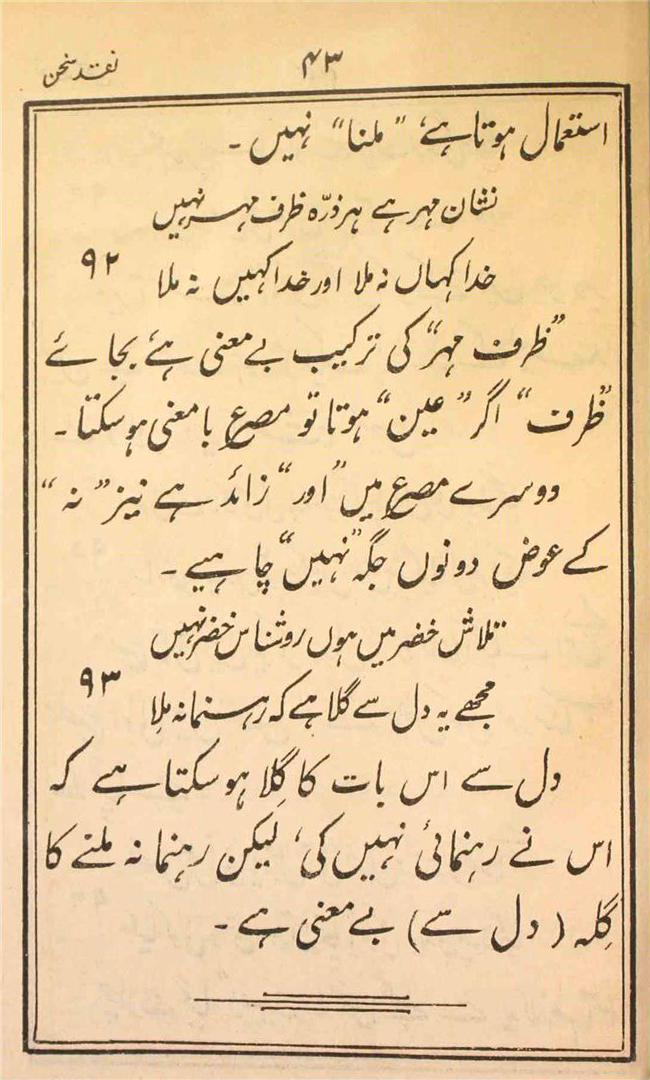 ۴۳ نقد سخن
استعمال ہوتا ہے، “ملنا” نہیں ۔
نشان مہر ہے ہر ذرّہ ظرف مہر نہیں
خدا کہاں نہ ملا اور خدا کہیں نہ ملا ۹۲
“ظرف مہر” کی ترکیب بے معنی ہے بجائے
“ظرف” اگر “عین” ہوتا تو مصرع بامعنی ہو سکتا ۔
دوسرے مصرع میں “اور” زائد ہے نیز “نہ”
کے عوض دونوں جگہ “نہیں” چاہیے ۔
تلاش خضر میں ہوں روشناس خضر نہیں
مجھے یہ دل سے گلا ہے کہ رہنما نہ ملا ۹۳
دل سے اس بات کا گِلا ہو سکتا ہے کہ
اس نے رہنمائی نہیں کی، لیکن رہنما نہ ملنے کا
گِلہ (دل سے) بے معنی ہے ۔